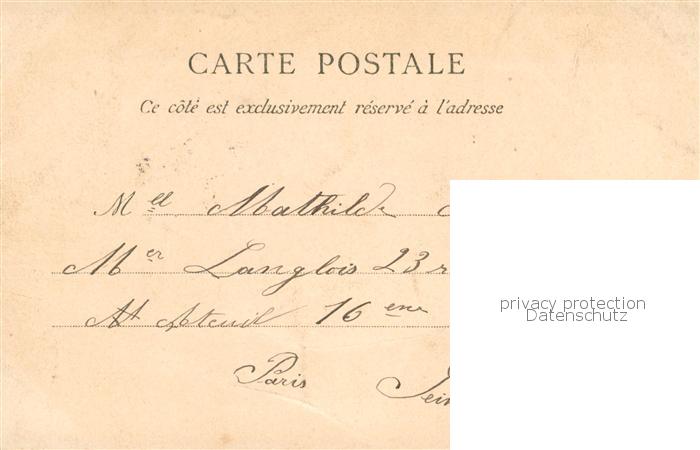 CARTE POSTALE
Ce côté est exclusivement réservé à l'adresse
Mell Mathilde
Mer Langlois 23 r
At Auteuil 16 eme
Paris Sein
privacy protection
Datenschutz